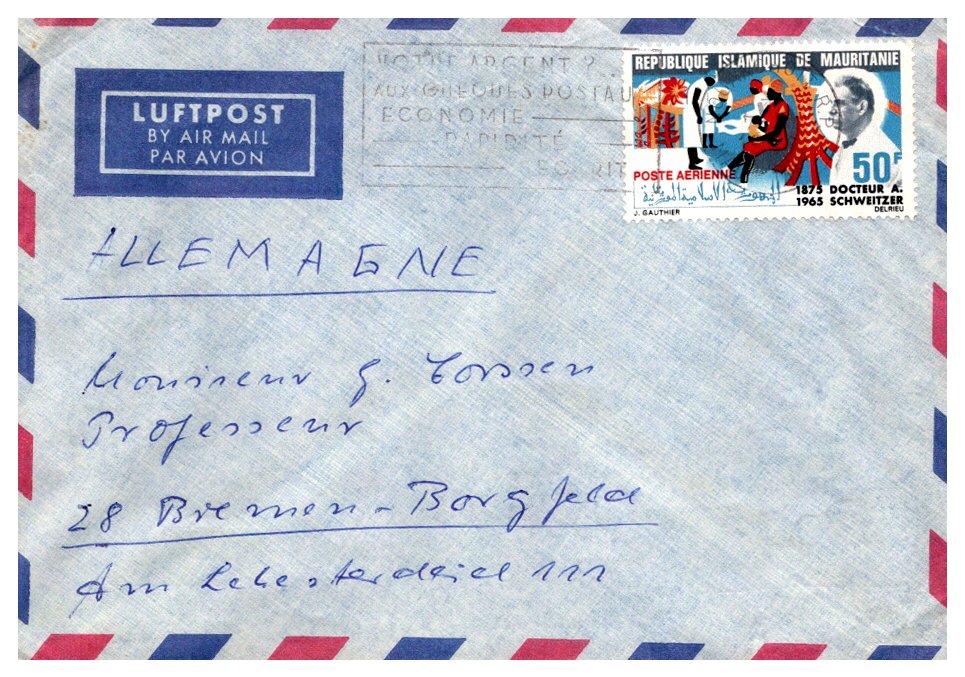 LUFTPOST
BY AIR MAIL
PAR AVION
VOTRE ARGENT ?
AUX CHEQUES POSTAUX
ECONOMIE
RAPIDITÉ
SECURITE
REPUBLIQUE ISLAMIQUE DE MAURITANIE
50F
POSTE AERIENNE
الجمهورية الاسلامية الموريتانية
1875 DOCTEUR A.
1965 SCHWEITZER
J. GAUTHIER
DELRIEU
ALLEMAGNE
Monsieur G. Corssen
Professeur
28 Bremen-Borgfeld
Am Lehesterdeich 111